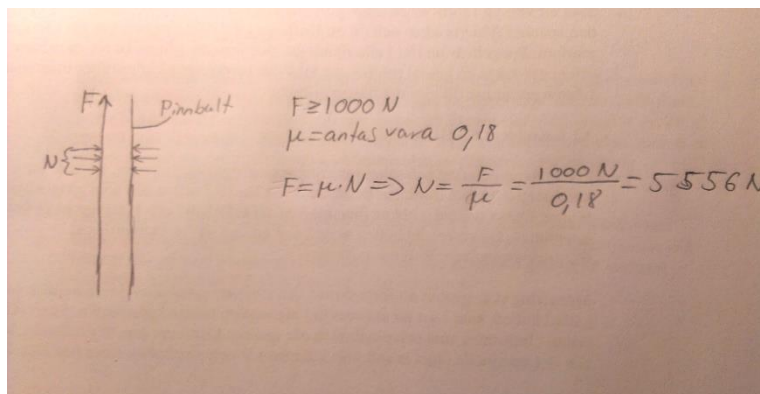 F Pinnbult
F≥1000 N
μ=antas vara 0,18
N
F=μ·N=>N= F/μ = 1000 N/0,18 = 5556 N